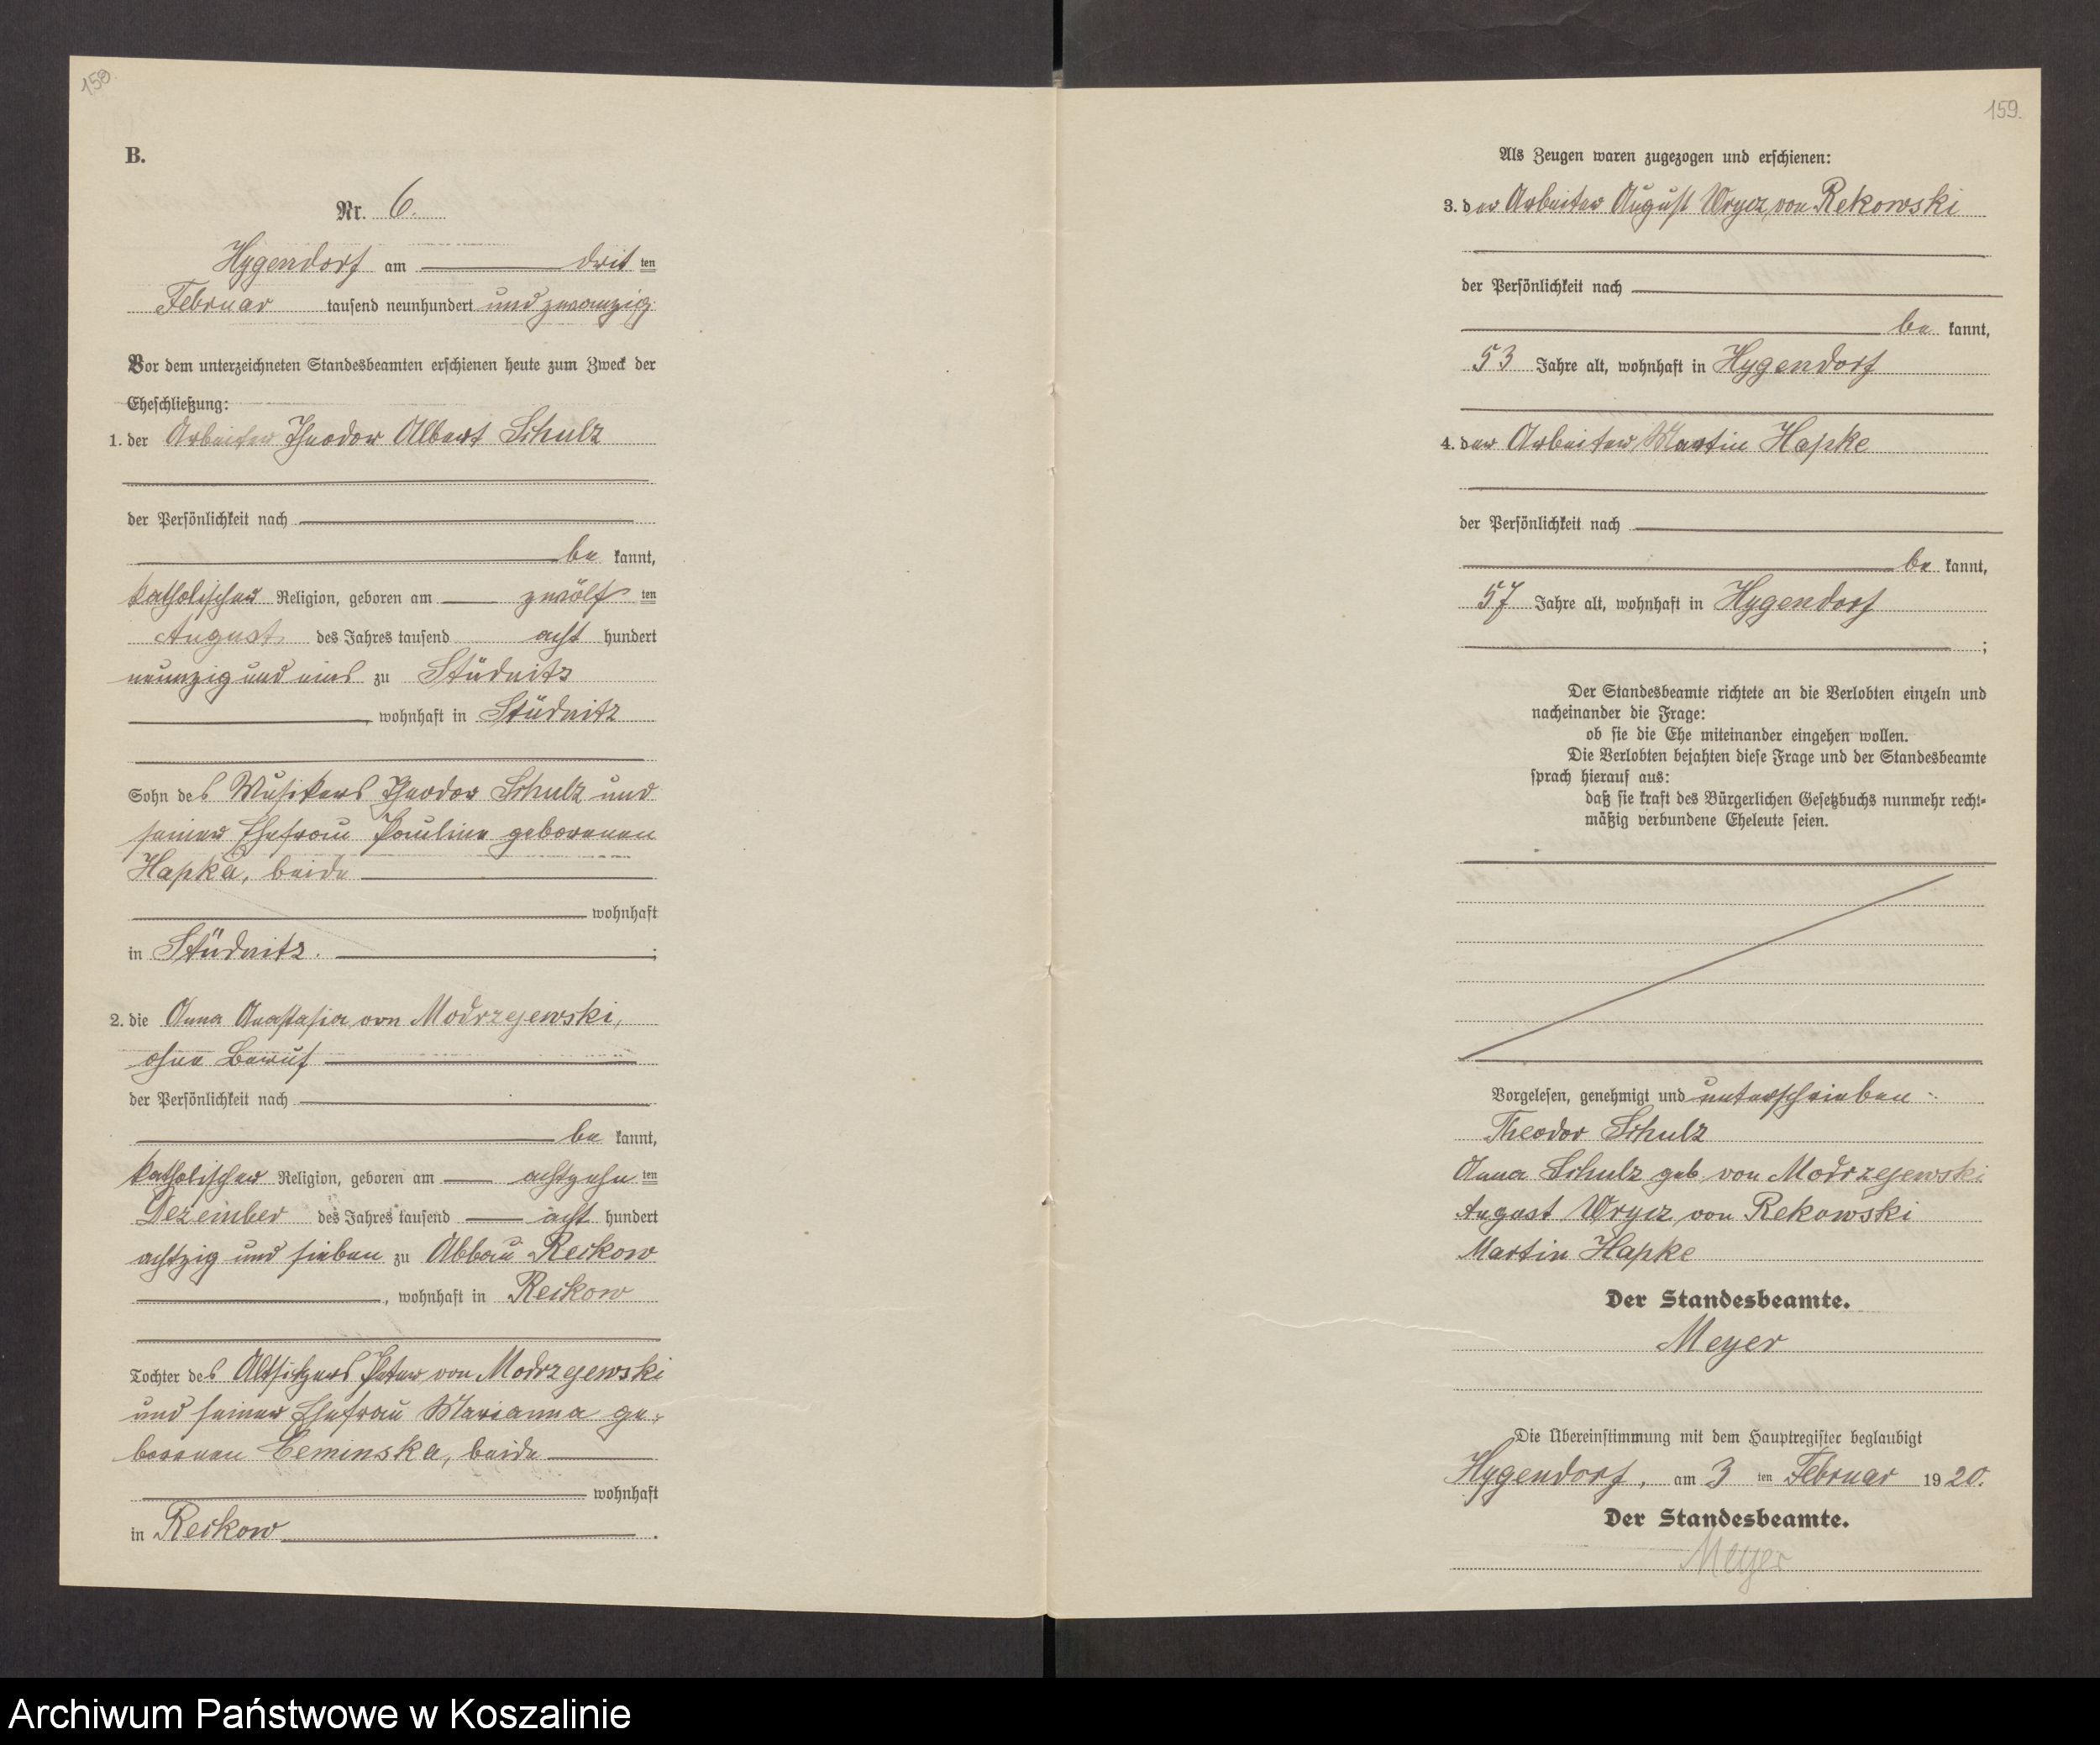 158.
B.
Nr. 6.
Hygendorf am drit ten
Februar tausend neunhundert und zwanzig.
Vor dem unterzeichneten Standesbeamten erschienen heute zum Zweck der
Eheschließung:
1. der Arbeiter Theodor Albert Schulz
der Persönlichkeit nach
be kannt,
katholischer Religion, geboren am zwölf ten
August des Jahres tausend acht hundert
neunzig und eins zu Stüdnitz
, wohnhaft in Stüdnitz
Sohn des Musikers Theodor Schulz und
seiner Ehefrau Pauline geborenen
Hapke, beide
wohnhaft
in Stüdnitz. ;
2. die Anna Anastasia von Modrzejewski,
ohne Beruf
der Persönlichkeit nach
be kannt,
katholischer Religion, geboren am achtzehn ten
Dezember des Jahres tausend acht hundert
achtzig und sieben zu Abbau Reckow
, wohnhaft in Reckow
Tochter des Altsitzers Peter von Modrzejewski
und seiner Ehefrau Marianna ge-
borenen Ceminska, beide
wohnhaft
in Reckow .
159.
Als Zeugen waren zugezogen und erschienen:
3. der Arbeiter August Wrycz von Rekowski
der Persönlichkeit nach
be kannt,
53 Jahre alt, wohnhaft in Hygendorf
4. der Arbeiter Martin Hapke
der Persönlichkeit nach
be kannt,
57 Jahre alt, wohnhaft in Hygendorf
;
Der Standesbeamte richtete an die Verlobten einzeln und
nacheinander die Frage:
ob sie die Ehe miteinander eingehen wollen.
Die Verlobten bejahten diese Frage und der Standesbeamte
sprach hierauf aus:
daß sie kraft des Bürgerlichen Gesetzbuchs nunmehr recht-
mäßig verbundene Eheleute seien.
Vorgelesen, genehmigt und unterschrieben:
Theodor Schulz
Anna Schulz geb. von Modrzejewski
August Wrycz von Rekowski
Martin Hapke
Der Standesbeamte.
Meyer
Die Übereinstimmung mit dem Hauptregister beglaubigt
Hygendorf, am 3 ten Februar 1920.
Der Standesbeamte.
Meyer
Archiwum Państwowe w Koszalinie